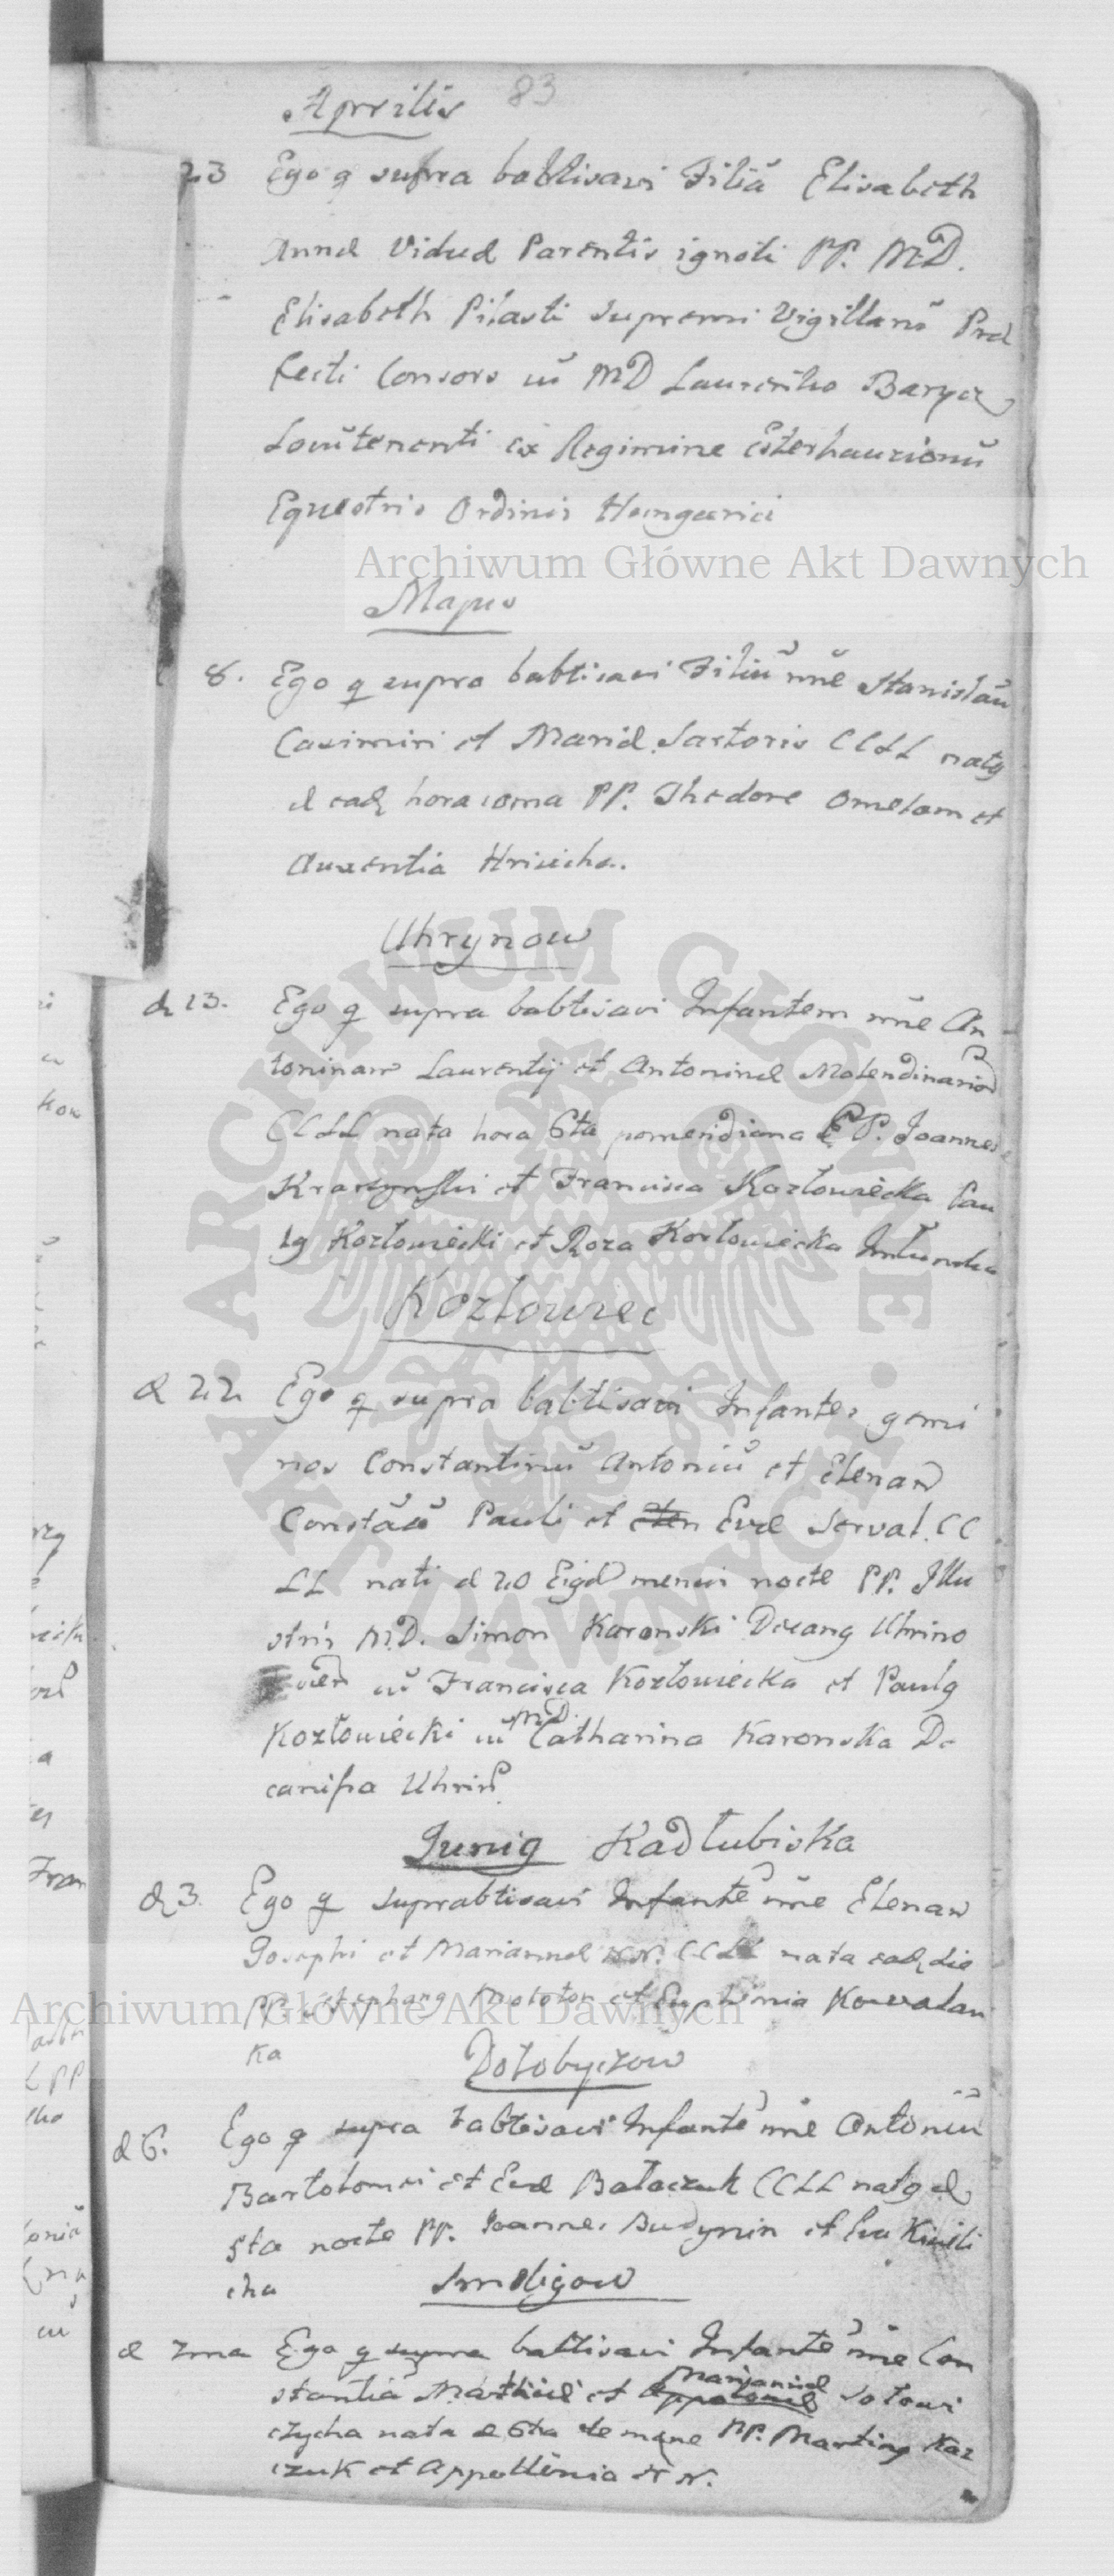 83
Aprilis
23 Ego q supra babtisavi Filiā Elisabeth
Annæ Viduæ Parentis ignoti PP. MD.
Elisabeth Pilasti Supremi Vigillanū Præ
fecti Consors cū MD Laurentio Barycz
Locūtenenti ex Regimine Esterhauzionū
Equestris Ordinis Hungarici
Archiwum Główne Akt Dawnych
Majus
8. Ego q supra babtisavi Filiū nñe Stanislaū
Casimiri et Mariæ Sartoris CCLL natq
d eadz hora PP. Thedore Omelam et
Auxentia Hriciha.
Uhrynow
d 13. Ego q supra babtisavi Infantem nñe An
toninam Laurentij et Antoninæ Molendinariorū
CCLL nata hora 6ta pomeridiana PP. Joannes
Krasynski et Francisca Kozłowiecka Pau
lq Kozłowiecki et Roza Kozłowiecka
Kozłowiec
d 22 Ego q supra babtisavi Infantes gemi
nos Constantinū Antoniū et Elenam
Constāū Pauli et Evæ Servat. CC
LL nati d 20 Eigd mensis nocte PP. Illu
stris M.D. Simon Karonski Decanq Uhrino
vien cū Francisca Kozłowiecka et Paulq
Kozłowiecki cū MD. Catharina Karonska De
canissa Uhrin
Juniq Kadłubiska
d 3. Ego q suprabtisavi Infantē nñe Elenam
Josephi et Mariannæ N.N. CCLL nata eadz die
PP. Stephanq Molotoc et Euphimia Kowalan
ka
Archiwum Główne Akt Dawnych
Dołobyczow
d 6. Ego q supra babtisavi Infantē nñe Antoniū
Bartolomei et Evæ Bałaczuk CCLL natq d
5ta nocte PP. Joannes Budynin et Eva Kiwili
cha
Smoligow
d 7ma Ego q supra babtisavi Infantē nñe Con
stantiā Mathiæ et Mariannæ Sołowi
czycha nata d 6ta de mane PP. Martinq Kaz
czuk et Appollonia N N.